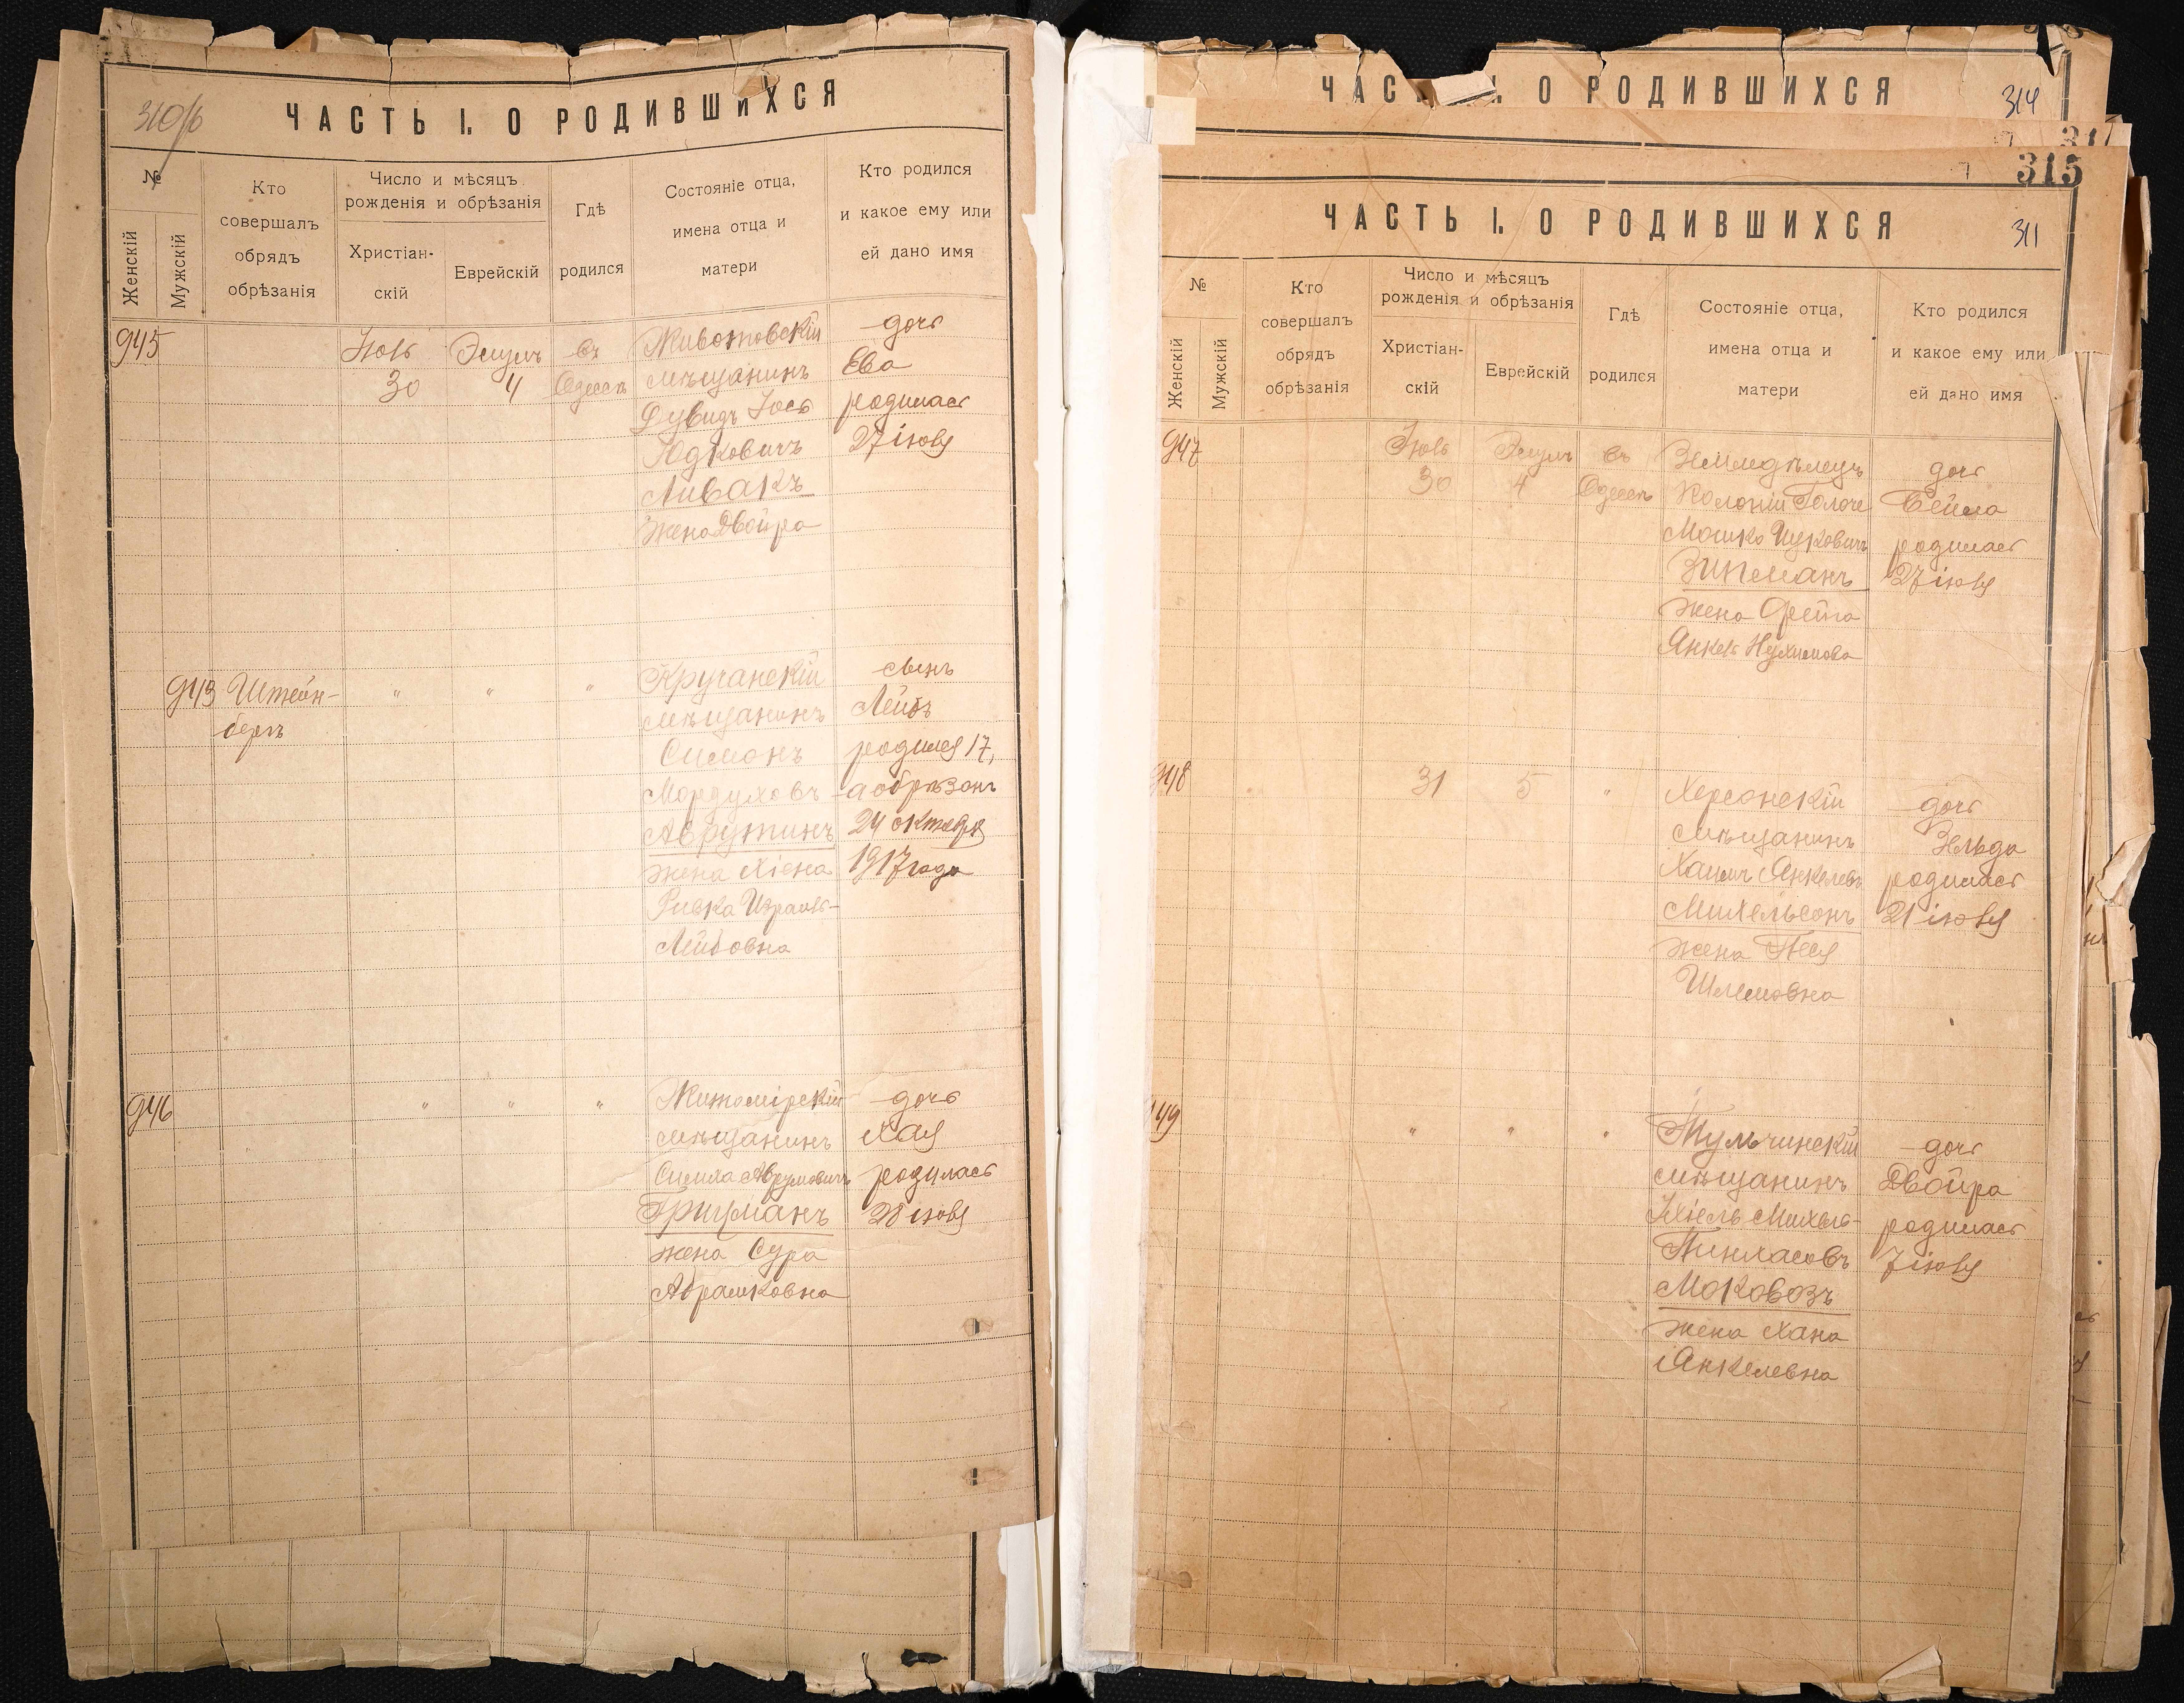 310/б
ЧАСТЬ I. О РОДИВШИХСЯ
№
Женскій
Мужскій
Кто
совершалъ
обрядъ
обрѣзанія
Число и мѣсяцъ
рожденія и обрѣзанія
Христіан-
скій
Еврейскій
Гдѣ
родился
Состояніе отца,
имена отца и
матери
Кто родился
и какое ему или
ей дано имя
945
Іюль
30
Элулъ
4
въ
Одессѣ
Животовскій
мѣщанинъ
Дувидъ Іось
Юдковичъ
Ливакъ
жена Двойра
дочь
Ева
родилась
27 іюля
943
Штейн-
бергъ
" " "
мѣщанинъ
Симонъ
Мордуховъ
Аврутинъ
жена Хіена
Ривка Израиль-
Лейбовна
сынъ
Лейбъ
родился 17,
а обрѣзанъ
24 октября
1917 года
946
" " "
Житомірскій
мѣщанинъ
Аврумовичъ
жена Сура
Абрамковна
дочь
Хая
родилась
28 іюля
ЧАСТЬ I. О РОДИВШИХСЯ
314
315
ЧАСТЬ I. О РОДИВШИХСЯ
311
№
Женскій
Мужскій
Кто
совершалъ
обрядъ
обрѣзанія
Число и мѣсяцъ
рожденія и обрѣзанія
Христіан-
скій
Еврейскій
Гдѣ
родился
Состояніе отца,
имена отца и
матери
Кто родился
и какое ему или
ей дано имя
947
Іюль
30
Элулъ
4
въ
Одессѣ
Земледѣлецъ
Колоніи
Мошко Ицковичъ
Зипманъ
жена
Нухимова
дочь
Бейла
родилась
27 іюля
948
31
5
"
Херсонскій
мѣщанинъ
Хаимъ Янкелевъ
Михельсонъ
жена Песя
Шлемовна
дочь
Зельда
родилась
21 іюля
949
" " "
Тульчинскій
мѣщанинъ
Іхіель Михель-
Пинхасовъ
Моковозъ
жена Хана
Янкелевна
дочь
Двойра
родилась
7 іюля